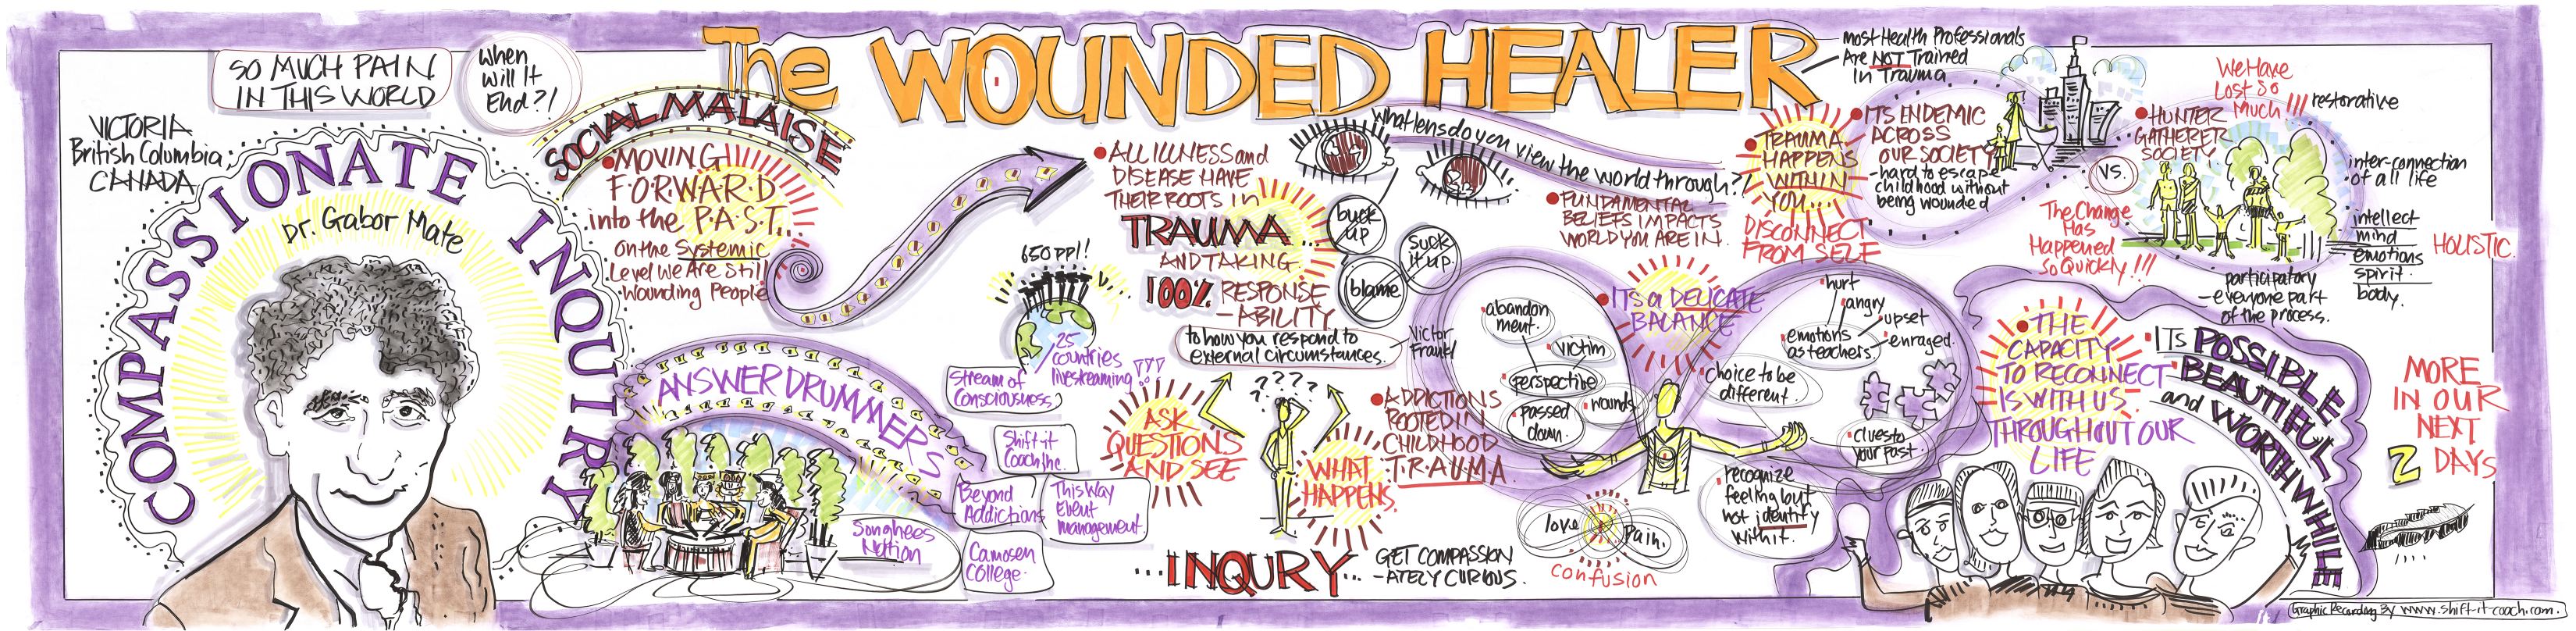 SO MUCH PAIN
IN THIS WORLD
When
will It
End?!
VICTORIA
British Columbia
CANADA
COMPASSIONATE INQUIRY
Dr. Gabor Mate
The WOUNDED HEALER
SOCIAL MALAISE
MOVING
F.O.R.W.A.R.D
into the P.A.S.T...
on the Systemic
Level We Are Still
Wounding People
ANSWER DRUMMERS
Songhees
Nation
650 ppl!
25
countries
livestreaming
Stream of
Consciousness
Shift-it
Coach Inc.
Beyond
Addictions
This Way
Event
management
Camosen
College
ALL ILLNESS and
DISEASE HAVE
THEIR ROOTS in
TRAUMA...
AND TAKING
100% RESPONSE
-ABILITY
to how you respond to
external circumstances.
Victor
Frankl
buck
up
suck
it up
blame
ASK
QUESTIONS
AND SEE
????
WHAT
HAPPENS
...INQURY...
GET COMPASSION
-ATELY CURIOUS.
ADDICTIONS
ROOTED IN
CHILDHOOD
T.R.A.U.M.A.
What lens do you view the world through?
FUNDAMENTAL
BELIEFS IMPACTS
WORLD YOU ARE IN.
most Health Professionals
Are NOT Trained
In Trauma
TRAUMA
HAPPENS
WITHIN
YOU...
DISCONNECT
FROM SELF
ITS ENDEMIC
ACROSS
OUR SOCIETY
-hard to escape
childhood without
being wounded
abandon
ment.
victim
perspective
passed
down.
wounds
ITS a DELICATE
BALANCE
hurt
angry
upset
enraged.
emotions
as teachers.
choice to be
different.
clues to
your past.
recognize
feeling but
not identify
with it.
love
Pain.
confusion
We Have
Lost So
Much!!!
HUNTER
GATHERER
SOCIETY
VS.
The Change
Has
Happened
So Quickly!!!
restorative
inter-connection
of all life
intellect
mind
emotions
spirit.
body.
HOLISTIC.
participatory
-everyone part
of the process.
THE
CAPACITY
TO RECONNECT
IS WITH US
THROUGHOUT OUR
LIFE
ITS POSSIBLE
BEAUTIFUL
and WORTHWHILE
MORE
IN OUR
NEXT
2 DAYS
Graphic Recording By www.shift-it-coach.com.